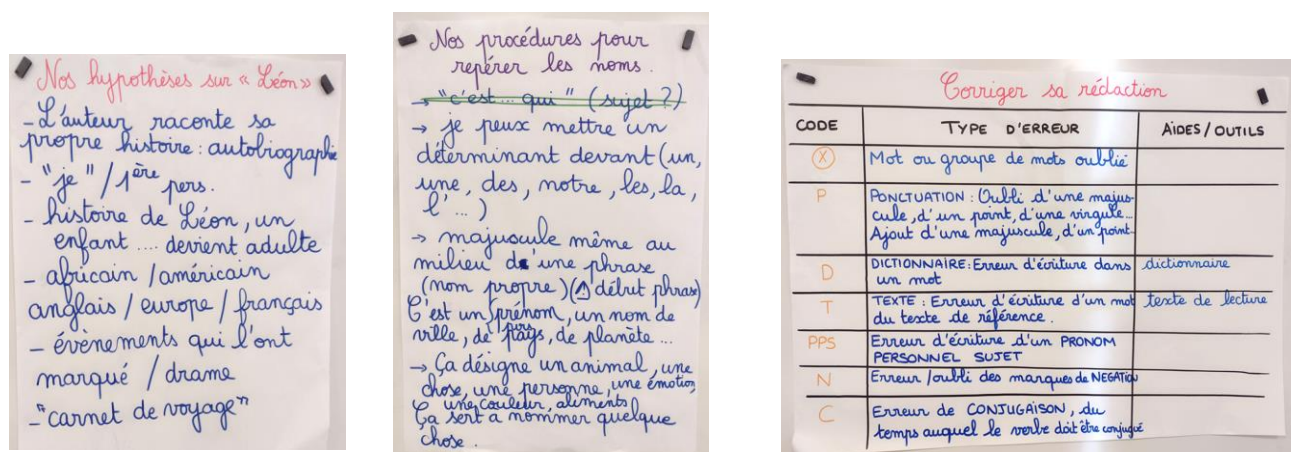 Nos hypothèses sur « Léon »
- L'auteur raconte sa
propre histoire : autobiographie
- "je" / 1ère pers.
- histoire de Léon, un
enfant .... devient adulte
- africain / américain
anglais / europe / français
- évènements qui l'ont
marqué / drame
- "carnet de voyage"
Nos procédures pour
repérer les noms.
→ "c'est ... qui" (sujet ?)
→ je peux mettre un
déterminant devant (un,
une, des, notre, les, la,
l' ... )
→ majuscule même au
milieu d'une phrase
(nom propre) (⚠ début phrase)
C'est un prénom, un nom de
ville, de pays, de planète ...
→ Ça désigne un animal, une
chose, une personne, une émotion,
une couleur, aliments
Ça sert à nommer quelque
chose.
Corriger sa rédaction
CODE TYPE D'ERREUR AIDES / OUTILS
X Mot ou groupe de mots oublié
P PONCTUATION : Oubli d'une majus-
cule, d'un point, d'une virgule...
Ajout d'une majuscule, d'un point...
D DICTIONNAIRE : Erreur d'écriture dans dictionnaire
un mot
T TEXTE : Erreur d'écriture d'un mot texte de lecture
du texte de référence.
PPS Erreur d'écriture d'un PRONOM
PERSONNEL SUJET
N Erreur / oubli des marques de NEGATION
C Erreur de CONJUGAISON, du
temps auquel le verbe doit être conjugué